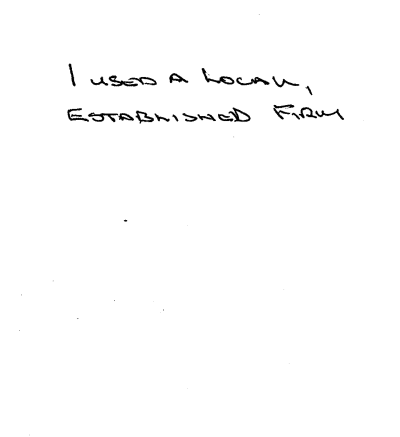 I USED A LOCAL,
ESTABLISHED FIRM